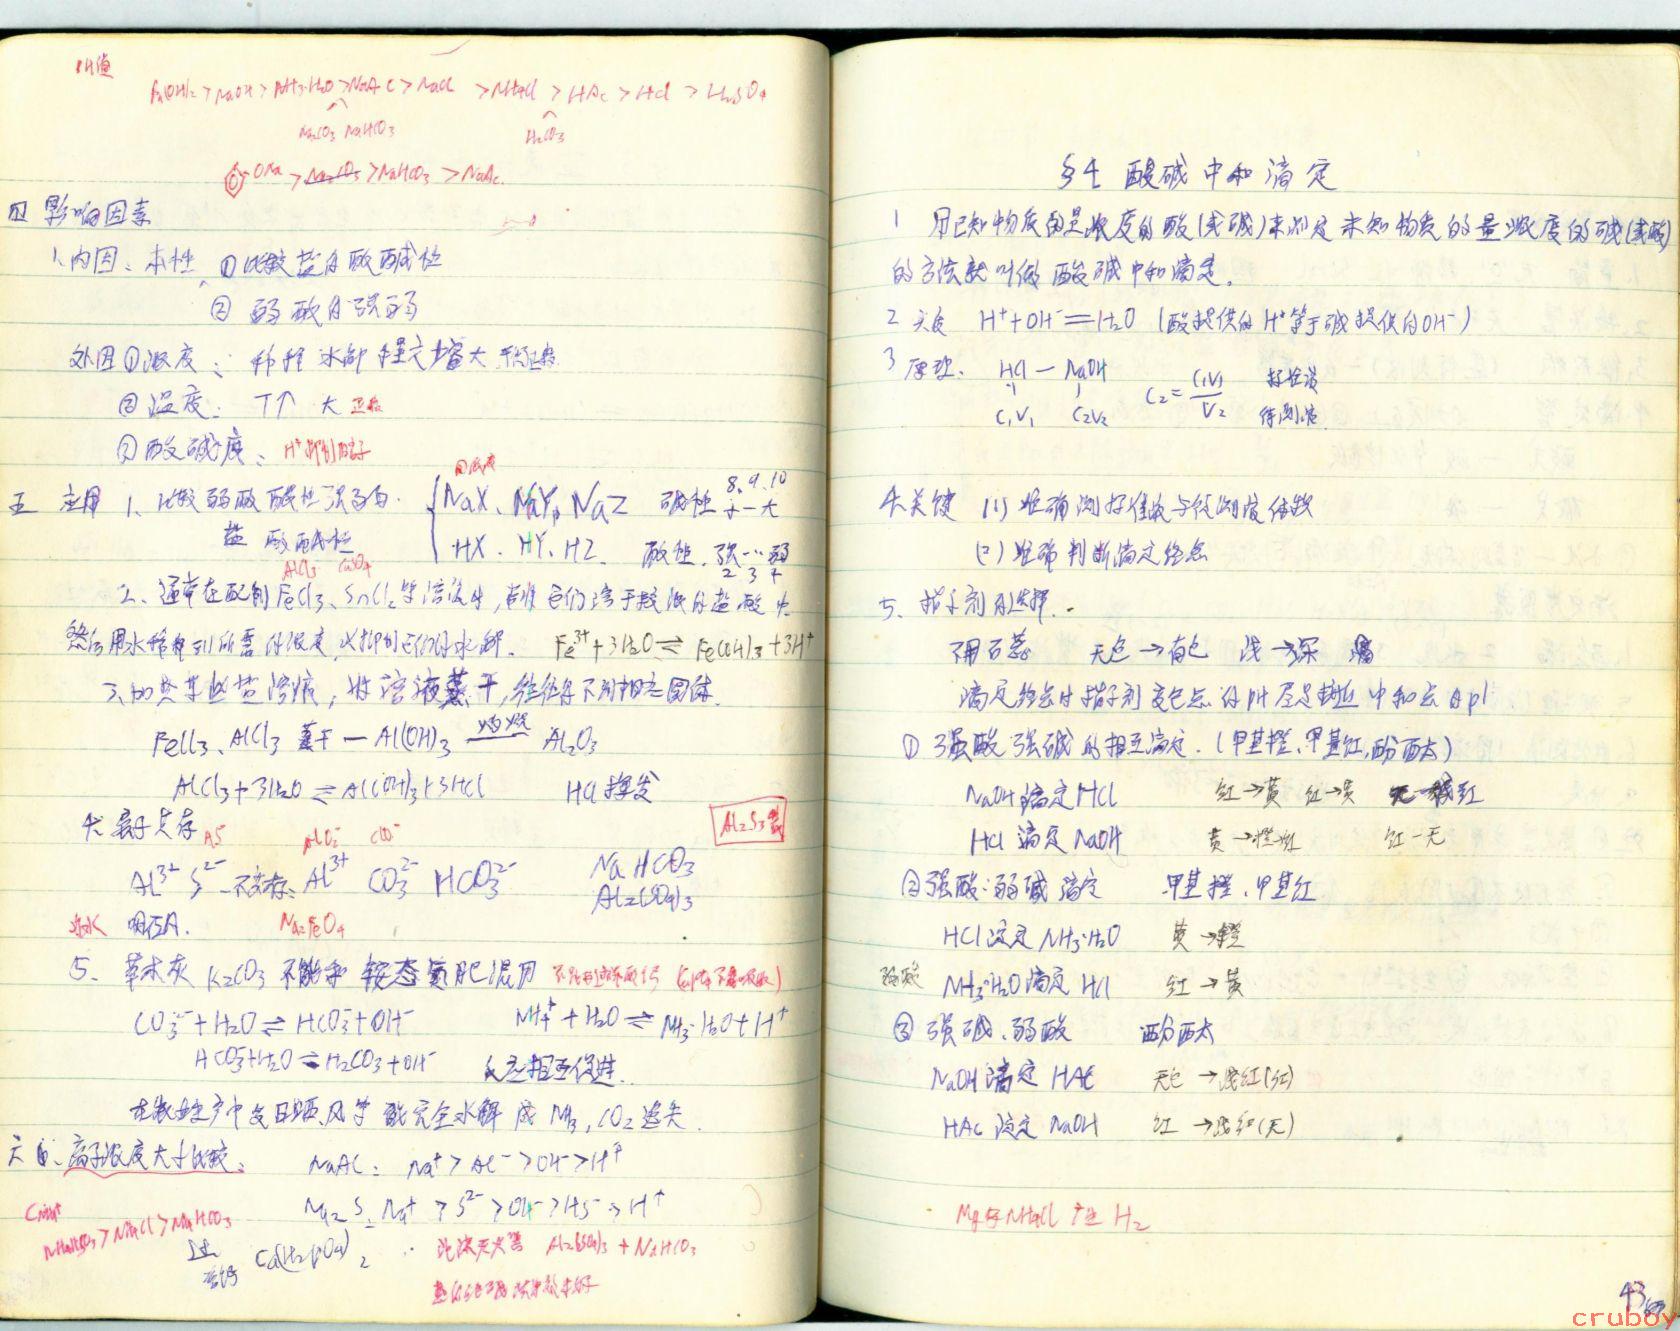 PH值
Ba(OH)2 > NaOH > NH3·H2O > NaAC > NaCl > NH4Cl > HAc > HCl > H2SO4
Na2CO3 NaHCO3
H2CO3
ONa > Na2CO3 > NaHCO3 > NaAc
四 影响因素
1、内因：本性 ①比较盐的酸碱性
② 弱酸的强弱
外因①浓度： 稀释 水解程度增大
②温度： T↑ 大
③酸碱度： H⁺抑制
五 应用 1、比较弱酸酸性强弱
盐 酸碱性
同浓度
NaX、NaY、NaZ 碱性 8、9、10
小—大
HX、HY、HZ 酸性、强…弱
AlCl3 CuSO4
2、通常在配制FeCl3、SnCl2等溶液时，
然后用水稀释到所需的浓度，以抑制它们的水解. Fe³⁺+3H2O⇌Fe(OH)3+3H⁺
3、加热某些盐溶液，将溶液蒸干，往往得不到相应固体.
FeCl3、AlCl3 蒸干 — Al(OH)3 灼烧 Al2O3
AlCl3+3H2O⇌Al(OH)3+3HCl HCl挥发
4、离子共存
Al2S3
AlO2⁻
Al³⁺ S²⁻ 不共存、Al³⁺ CO3²⁻ HCO3²⁻ NaHCO3
Al2(SO4)3
净水 明矾A.
Na2FeO4
5、草木灰 K2CO3 不能和 铵态氮肥混用
CO3²⁻+H2O⇌HCO3⁻+OH⁻ NH4⁺+H2O⇌NH3·H2O+H⁺
HCO3⁻+H2O⇌H2CO3+OH⁻ 反应相互促进.
在农业生产中 能完全水解成 NH3, CO2 逸失.
六 离子浓度大小比较、 NaAC: Na⁺>AC⁻>OH⁻>H⁺
Na2S: Na⁺ > S²⁻ > OH⁻ > HS⁻ > H⁺
NH4HCO3 > NH4Cl > NaHCO3
Ca(H2PO4)2
泡沫灭火器 Al2(SO4)3 + NaHCO3
§4 酸碱中和滴定
1 用已知物质的量浓度的酸(或碱)来测定未知物质的量浓度的碱(或酸)
的方法就叫做 酸碱中和滴定.
2 实质 H⁺+OH⁻=H2O (酸提供的H⁺等于碱提供的OH⁻)
3 原理、 HCl — NaOH
C1V1 C2V2
C2=C1V1/V2 标准液
待测液
4、关键 (1) 准确测标准液与待测液体积
(2) 准确判断滴定终点
5、指示剂的选择.
不用石蕊 无色→有色 浅→深
滴定终点时指示剂变色点的pH尽量接近中和点的pH
① 强酸 强碱的相互滴定. (甲基橙、甲基红, 酚酞)
NaOH滴定HCl 红→黄 红→黄
HCl滴定NaOH 黄→橙 红—无
②强酸·弱碱滴定 甲基橙、甲基红
HCl滴定NH3·H2O 黄→橙
NH3·H2O滴定HCl 红→黄
③强碱、弱酸 酚酞
NaOH滴定HAC 无色→浅红(红)
HAC滴定NaOH 红→浅红(无)
Mg与NH4Cl产生H2
43
cruboy